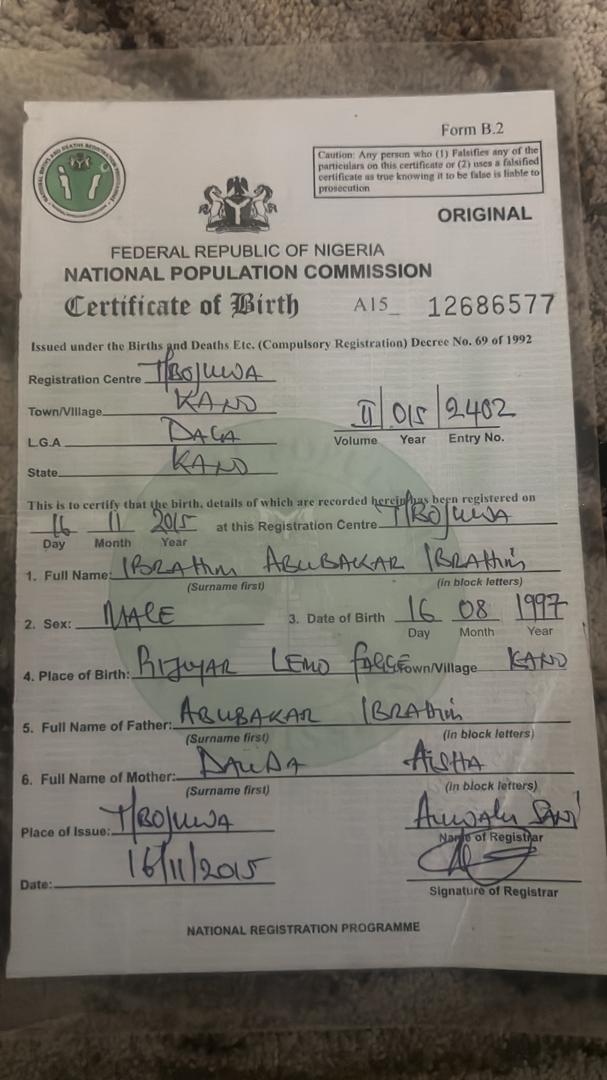 Form B.2
Caution: Any person who (1) Falsifies any of the
particulars on this certificate or (2) uses a falsified
certificate as true knowing it to be false is liable to
prosecution
ORIGINAL
FEDERAL REPUBLIC OF NIGERIA
NATIONAL POPULATION COMMISSION
Certificate of Birth A15_ 12686577
Issued under the Births and Deaths Etc. (Compulsory Registration) Decree No. 69 of 1992
Registration Centre T/BOJUWA
Town/Village KANO
II 015 2402
L.G.A DALA
Volume Year Entry No.
State KANO
This is to certify that the birth, details of which are recorded herein has been registered on
16 11 2015 at this Registration Centre T/BOJUWA
Day Month Year
1. Full Name: IBRAHIM ABUBAKAR IBRAHIM
(Surname first) (in block letters)
2. Sex: MALE 3. Date of Birth 16 08 1997
Day Month Year
4. Place of Birth: RIJIYAR LEMO Town/Village KANO
5. Full Name of Father: ABUBAKAR IBRAHIM
(Surname first) (in block letters)
6. Full Name of Mother: DAUDA AISHA
(Surname first) (in block letters)
Place of Issue: T/BOJUWA AUWALU SANI
Name of Registrar
Date: 16/11/2015
Signature of Registrar
NATIONAL REGISTRATION PROGRAMME